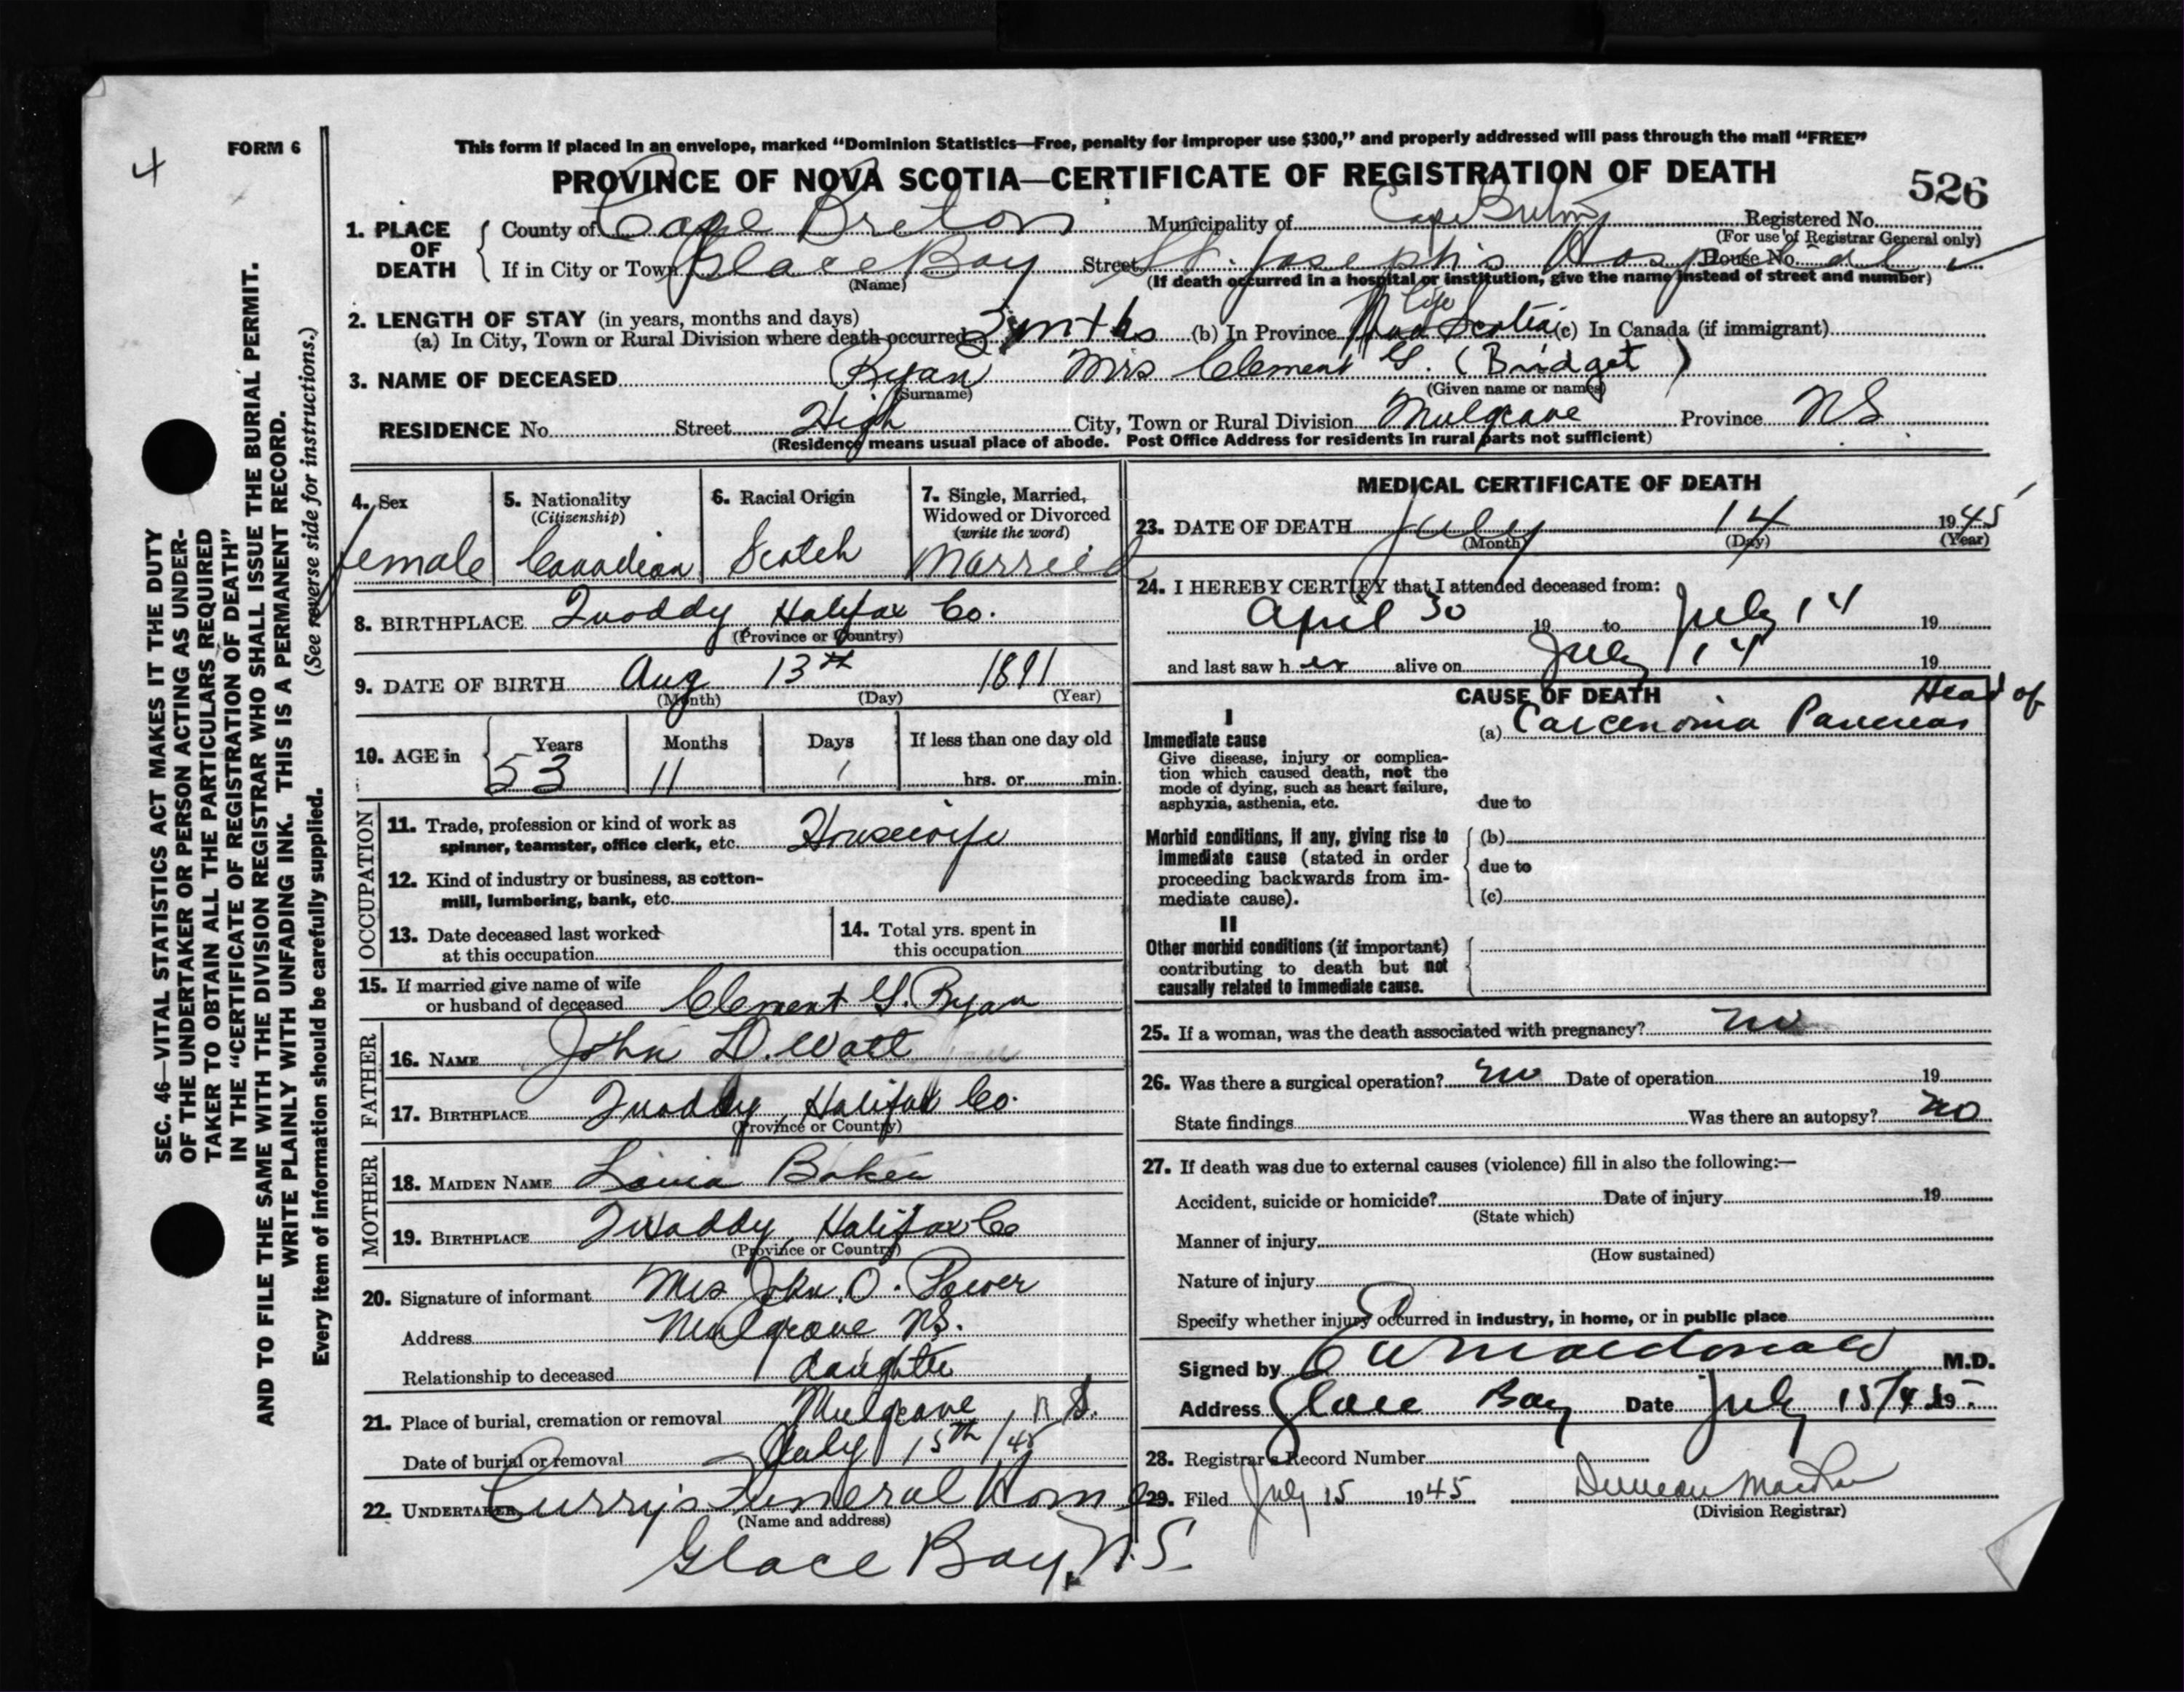 4
FORM 6
This form if placed in an envelope, marked “Dominion Statistics—Free, penalty for improper use $300,” and properly addressed will pass through the mail “FREE”
PROVINCE OF NOVA SCOTIA—CERTIFICATE OF REGISTRATION OF DEATH
526
1. PLACE OF DEATH County of Cape Breton Municipality of Cape Breton Registered No.
(For use of Registrar General only)
If in City or Town Glace Bay Street St. Joseph's Hospital House No.
(Name) (If death occurred in a hospital or institution, give the name instead of street and number)
2. LENGTH OF STAY (in years, months and days)
(a) In City, Town or Rural Division where death occurred 3 mths (b) In Province Life Nova Scotia (c) In Canada (if immigrant)
3. NAME OF DECEASED Ryan Mrs Clement G. (Bridget)
(Surname) (Given name or names)
RESIDENCE No. Street High City, Town or Rural Division Mulgrave Province NS
(Residence means usual place of abode. Post Office Address for residents in rural parts not sufficient)
4. Sex
female
5. Nationality
(Citizenship)
Canadian
6. Racial Origin
Scotch
7. Single, Married,
Widowed or Divorced
(write the word)
Married
8. BIRTHPLACE Quoddy, Halifax Co.
(Province or Country)
9. DATE OF BIRTH Aug 13th 1891
(Month) (Day) (Year)
10. AGE in Years Months Days If less than one day old
53 11 1 hrs. or min.
OCCUPATION
11. Trade, profession or kind of work as
spinner, teamster, office clerk, etc. Housewife
12. Kind of industry or business, as cotton-
mill, lumbering, bank, etc.
13. Date deceased last worked
at this occupation
14. Total yrs. spent in
this occupation
15. If married give name of wife
or husband of deceased Clement G. Ryan
FATHER
16. NAME John D. Watt
17. BIRTHPLACE Quoddy, Halifax Co.
(Province or Country)
MOTHER
18. MAIDEN NAME Baker
19. BIRTHPLACE Quoddy, Halifax Co
(Province or Country)
20. Signature of informant Mrs John O. Power
Address Mulgrave NS.
Relationship to deceased daughter
21. Place of burial, cremation or removal Mulgrave, N.S.
Date of burial or removal July 15th/45
22. UNDERTAKER Curry's Funeral Home
(Name and address)
Glace Bay, N.S.
MEDICAL CERTIFICATE OF DEATH
23. DATE OF DEATH July 14 1945
(Month) (Day) (Year)
24. I HEREBY CERTIFY that I attended deceased from:
April 30 19 to July 14 19
and last saw her alive on July 14 19
CAUSE OF DEATH
I
Immediate cause
Give disease, injury or complica-
tion which caused death, not the
mode of dying, such as heart failure,
asphyxia, asthenia, etc.
Head of
(a) Carcenoma Pancreas
due to
Morbid conditions, if any, giving rise to
immediate cause (stated in order
proceeding backwards from im-
mediate cause).
(b)
due to
(c)
II
Other morbid conditions (if important)
contributing to death but not
causally related to immediate cause.
25. If a woman, was the death associated with pregnancy? no
26. Was there a surgical operation? no Date of operation 19
State findings Was there an autopsy? no
27. If death was due to external causes (violence) fill in also the following:—
Accident, suicide or homicide? Date of injury 19
(State which)
Manner of injury
(How sustained)
Nature of injury
Specify whether injury occurred in industry, in home, or in public place
Signed by Macdonald M.D.
Address Glace Bay Date July 15/45 19
28. Registrar's Record Number
29. Filed July 15 1945 Duncan
(Division Registrar)
SEC. 46—VITAL STATISTICS ACT MAKES IT THE DUTY
OF THE UNDERTAKER OR PERSON ACTING AS UNDER-
TAKER TO OBTAIN ALL THE PARTICULARS REQUIRED
IN THE “CERTIFICATE OF REGISTRATION OF DEATH”
AND TO FILE THE SAME WITH THE DIVISION REGISTRAR WHO SHALL ISSUE THE BURIAL PERMIT.
WRITE PLAINLY WITH UNFADING INK. THIS IS A PERMANENT RECORD.
Every item of information should be carefully supplied. (See reverse side for instructions.)